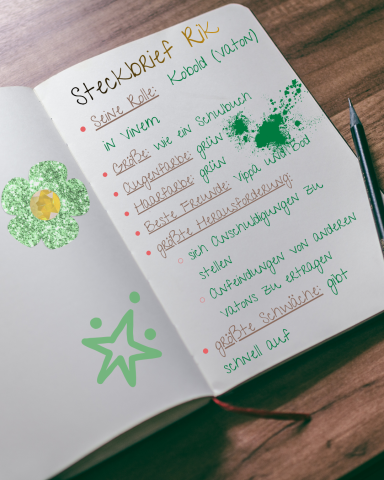 Steckbrief Rik
Seine Rolle: Kobold (Vaton)
in Vinem
Größe: wie ein Schulbuch
Augenfarbe: grün
Haarfarbe: grün
Beste Freunde: Vippa und Bod
größte Herausforderung:
sich Anschuldigungen zu
stellen
Anfeindungen von anderen
Vatons zu ertragen
größte Schwäche: gibt
schnell auf